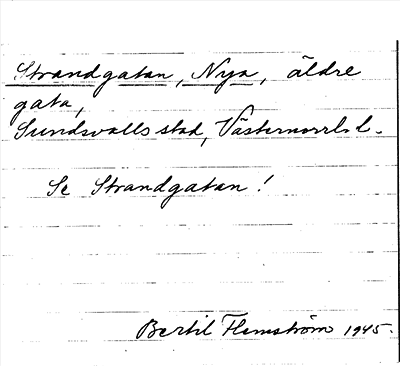 Strandgatan, Nya, äldre
gata,
Sundsvalls stad, Västernorrl. l.
Se Strandgatan!
Bertil Flemström 1945.